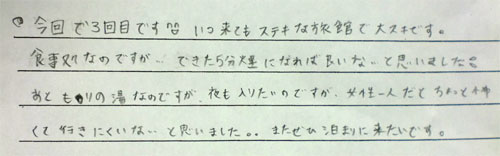 今回で3回目です いつ来てもステキな旅館で大スキです。
食事処なのですが‥できたら5分大量になれば良いな‥と思いました
あともりの湯なのですが、夜も入りたいのですが、女性一人だとちょっと怖
くて行きにくいな‥と思いました。。またぜひ泊まりに来たいです。